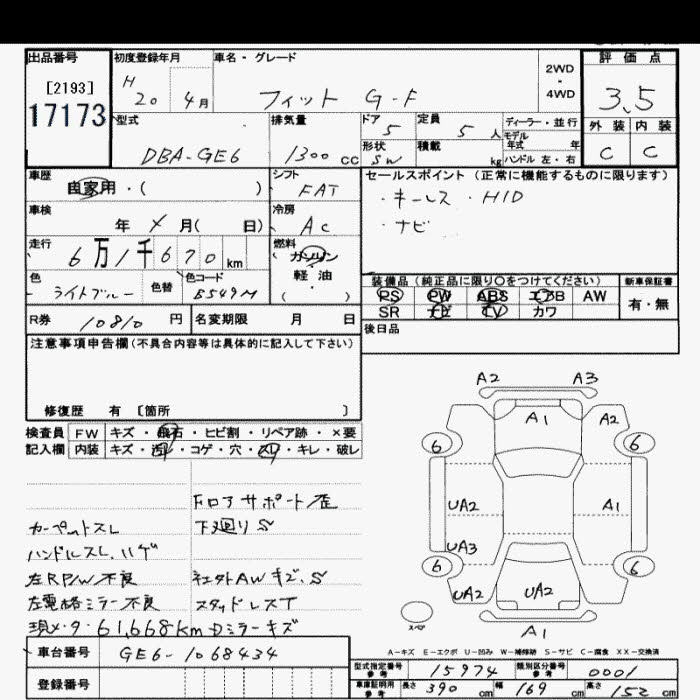 出品番号
[2193]
17173
初度登録年月
H 20 4月
車名・グレード
フィット G-F
2WD
・
4WD
評価点
3.5
外装 内装
C C
型式
DBA-GE6
排気量
1300 cc
ドア 5
形状 SW
定員 5 人
積載 kg
ディーラー・並行
モデル年式 年
ハンドル 左・右
車歴
自家用・( )
シフト
FAT
車検
年 × 月( 日)
冷房
AC
走行
6万1千670km
燃料
ガソリン
軽・油
( )
色
ライトブルー
色替
色コード
B549M
R券 10810 円
名変期限 月 日
セールスポイント(正常に機能するものに限ります)
・キーレス ・HID
・ナビ
装備品(純正品に限り○をつけてください)
PS PW ABS エアB AW
SR ナビ TV カワ
新車保証書
有・無
後日品
注意事項申告欄(不具合内容等は具体的に記入して下さい)
修復歴 有 [箇所 ]
検査員 FW キズ・飛石・ヒビ割・リペア跡・×要
記入欄 内装 キズ・汚れ・コゲ・穴・スレ・キレ・破レ
カーペットスレ
ハンドルスレ、ハゲ
左RP/W不良
左電格ミラー不良
現メーター61,668km
ドミラーキズ
FロアサポートO歪
下廻りS
社外AWキズ、S
スタッドレスT
A2 A3
A1 A2
6 6
UA2 A1
UA3
6 6
UA2 UA2
スペア
A1
A-キズ E-エクボ U-凹み W-補修跡 S-サビ C-腐食 XX-交換済
車台番号 GE6-1068434
登録番号
型式指定番号 参考 15974
類別区分番号 参考 0001
車庫証明用 参考 長さ 390 cm 幅 169 cm 高さ 152 cm